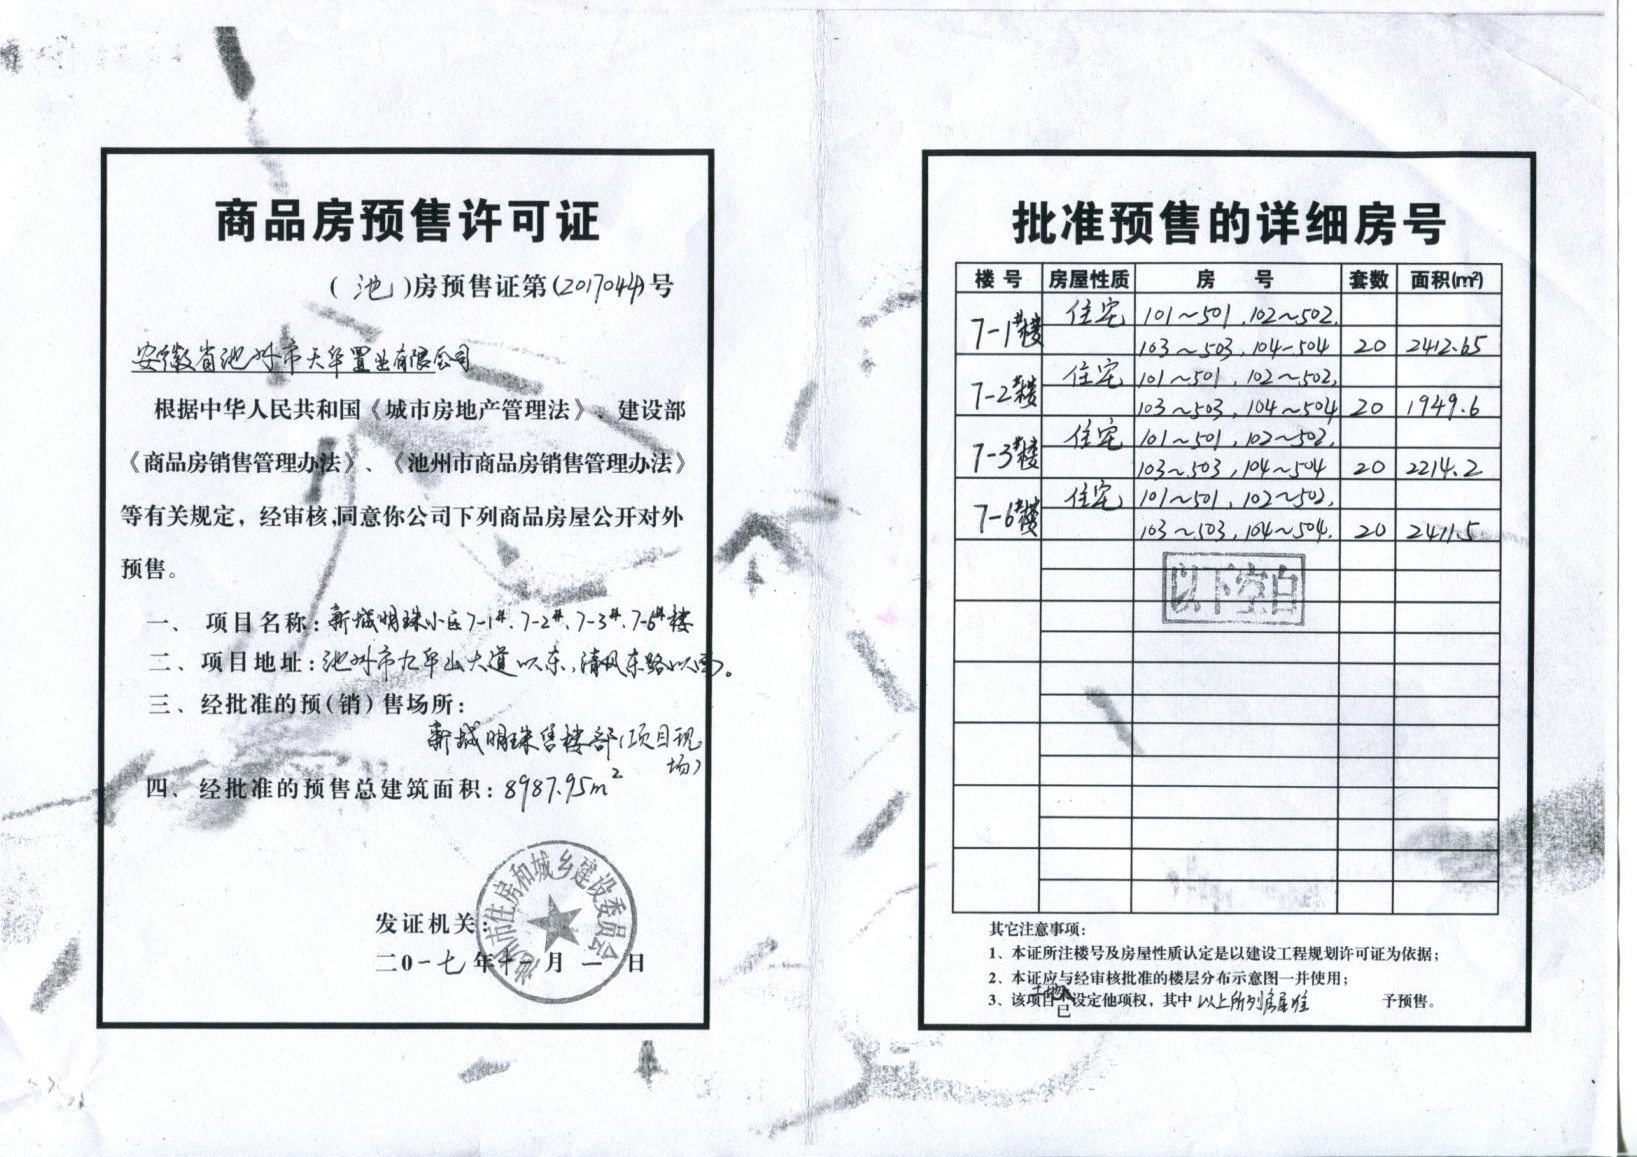 商品房预售许可证
(池)房预售证第(2017044)号
安徽省池州市天华置业有限公司
根据中华人民共和国《城市房地产管理法》、建设部
《商品房销售管理办法》、《池州市商品房销售管理办法》
等有关规定，经审核,同意你公司下列商品房屋公开对外
预售。
一、项目名称:新城明珠小区7-1#、7-2#、7-3#、7-6#楼
二、项目地址:池州市九华山大道以东,清风东路以西。
三、经批准的预(销)售场所:
新城明珠售楼部(项目现
场)
四、经批准的预售总建筑面积:8987.95m²
发证机关:
池州市住房和城乡建设委员会
二0一七年十一月一日
批准预售的详细房号
楼号 房屋性质 房号 套数 面积(m²)
7-1#楼 住宅 101~501,102~502,
103~503,104~504 20 2412.65
7-2#楼 住宅 101~501,102~502,
103~503,104~504 20 1949.6
7-3#楼 住宅 101~501,102~502,
103~503,104~504 20 2214.2
7-6#楼 住宅 101~501,102~502,
103~503,104~504. 20 2411.5
以下空白
其它注意事项:
1、本证所注楼号及房屋性质认定是以建设工程规划许可证为依据;
2、本证应与经审核批准的楼层分布示意图一并使用;
3、该项目土地已设定他项权,其中以上所列房屋准予预售。